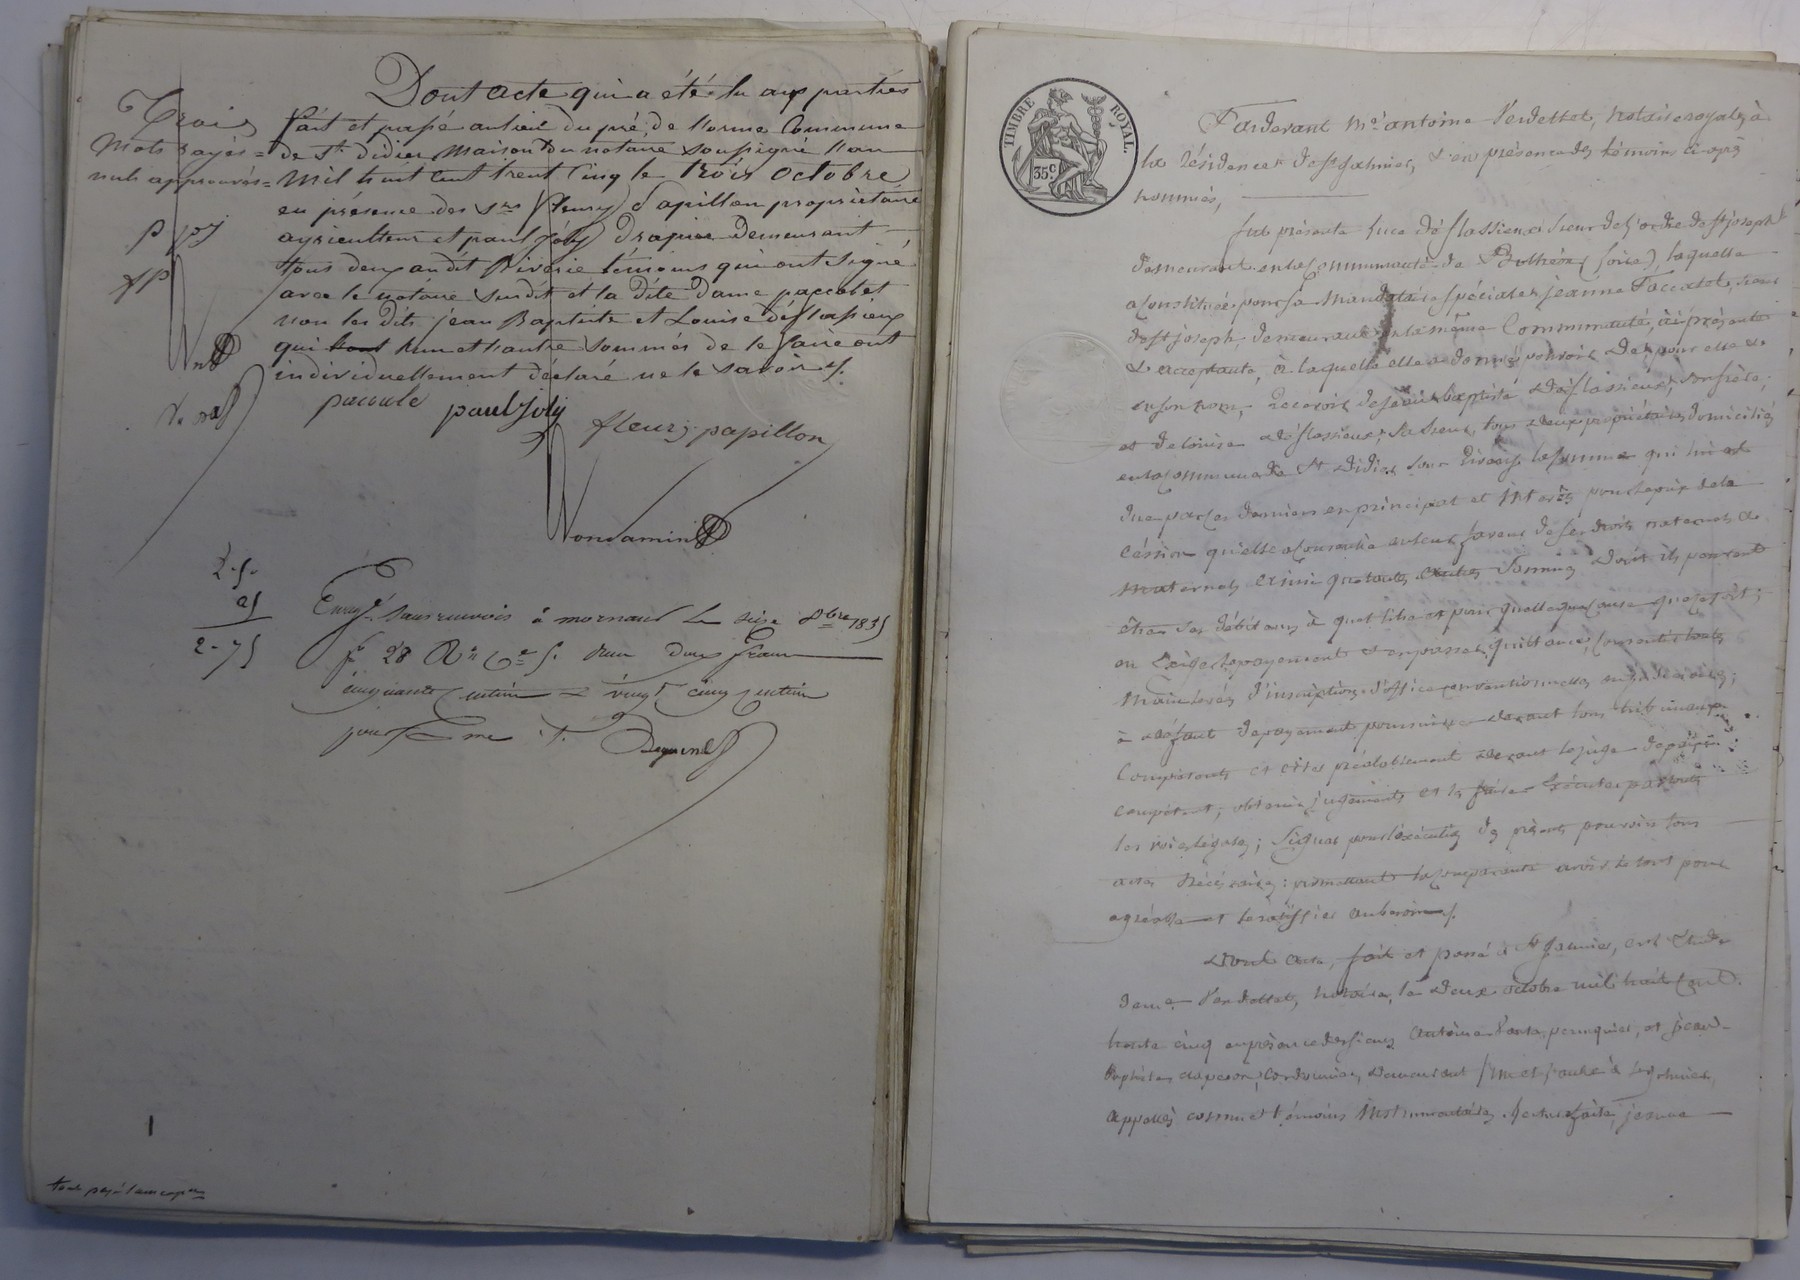 Dont acte qui a été lu aux parties
fait et passé au lieu du pré de l'orme Commune
de St. Didier maison du notaire soussigné l'an
mil huit cent trent Cinq le trois octobre
en présence des srs fleury Papillon propriétaire
agriculteur et paul Joly drapier demeurant
tous deux audit Riverie témoins qui ont signé
avec le notaire susdit et la dite dame paccalet
non les dits jean Baptiste et Louise déflassieux
qui l'un et l'autre sommés de le faire ont
individuellement déclaré ne le savoir ./.
Trois
mots rayés =
nuls approuvés =
p pj
fP
paul Joly
fleury papillon
2-5-
25
2-75
Enregé. sans renvois à mornant le seize 8bre 1835
fo 28 Ro Ce 5. reçu deux francs
cinquante centimes = vingt cinq centimes
pour
TIMBRE ROYAL.
35c.
Pardevant me. antoine Verdellet, notaire royal, à
la résidence de St. galmier, & en présence des témoins ci-après
nommés,
fut présente luce déflassieux sœur de l'ordre de St joseph
demeurant en la Communauté de (Loire) laquelle
a constitué pour sa mandataire spéciale jeanne Paccalet, sœur
de St joseph, demeurant en la même Communauté, ici présente
& acceptante, à laquelle elle a donné pouvoir de, pour elle &
en son nom, Recevoir de jean baptiste déflassieux, son frère,
et de louise déflassieux, sa sœur, tous deux propriétaires domiciliés
en la Commune de St Didier sous Riverie la somme qui lui est
due par ces derniers en principal et intérêts pour le prix de la
cession qu'elle a consentie en leur faveur de ses droits paternels &
maternels ainsi que toutes autres sommes dont ils pourront
être ses débiteurs à quel titre et pour quelle que cause que ce soit;
en Exiger le payement & en passer quittance, consentir toutes
mainlevées d'inscriptions d'office conventionnelles ou judiciaires;
à défaut de payement poursuivre devant tous tribunaux
compétants et citer préalablement devant le juge de paix
compétent, obtenir jugements et les faire Exécuter par toutes
les voies légales; signer pour l'exécution des présents pouvoirs tous
actes Nécéssaires: promettant la comparante avoir le tout pour
agréable et le ratifier au besoin ./.
Dont acte, fait et passé à St galmier, en l'étude
de me. Verdellet, notaire, le deux octobre mil huit cent
trente cinq en présence des sieurs antoine perruquier, et jean-
Baptiste cordonnier, demeurant l'un et l'autre à St galmier,
appelés comme témoins instrumentaires. lecture faite, jeanne